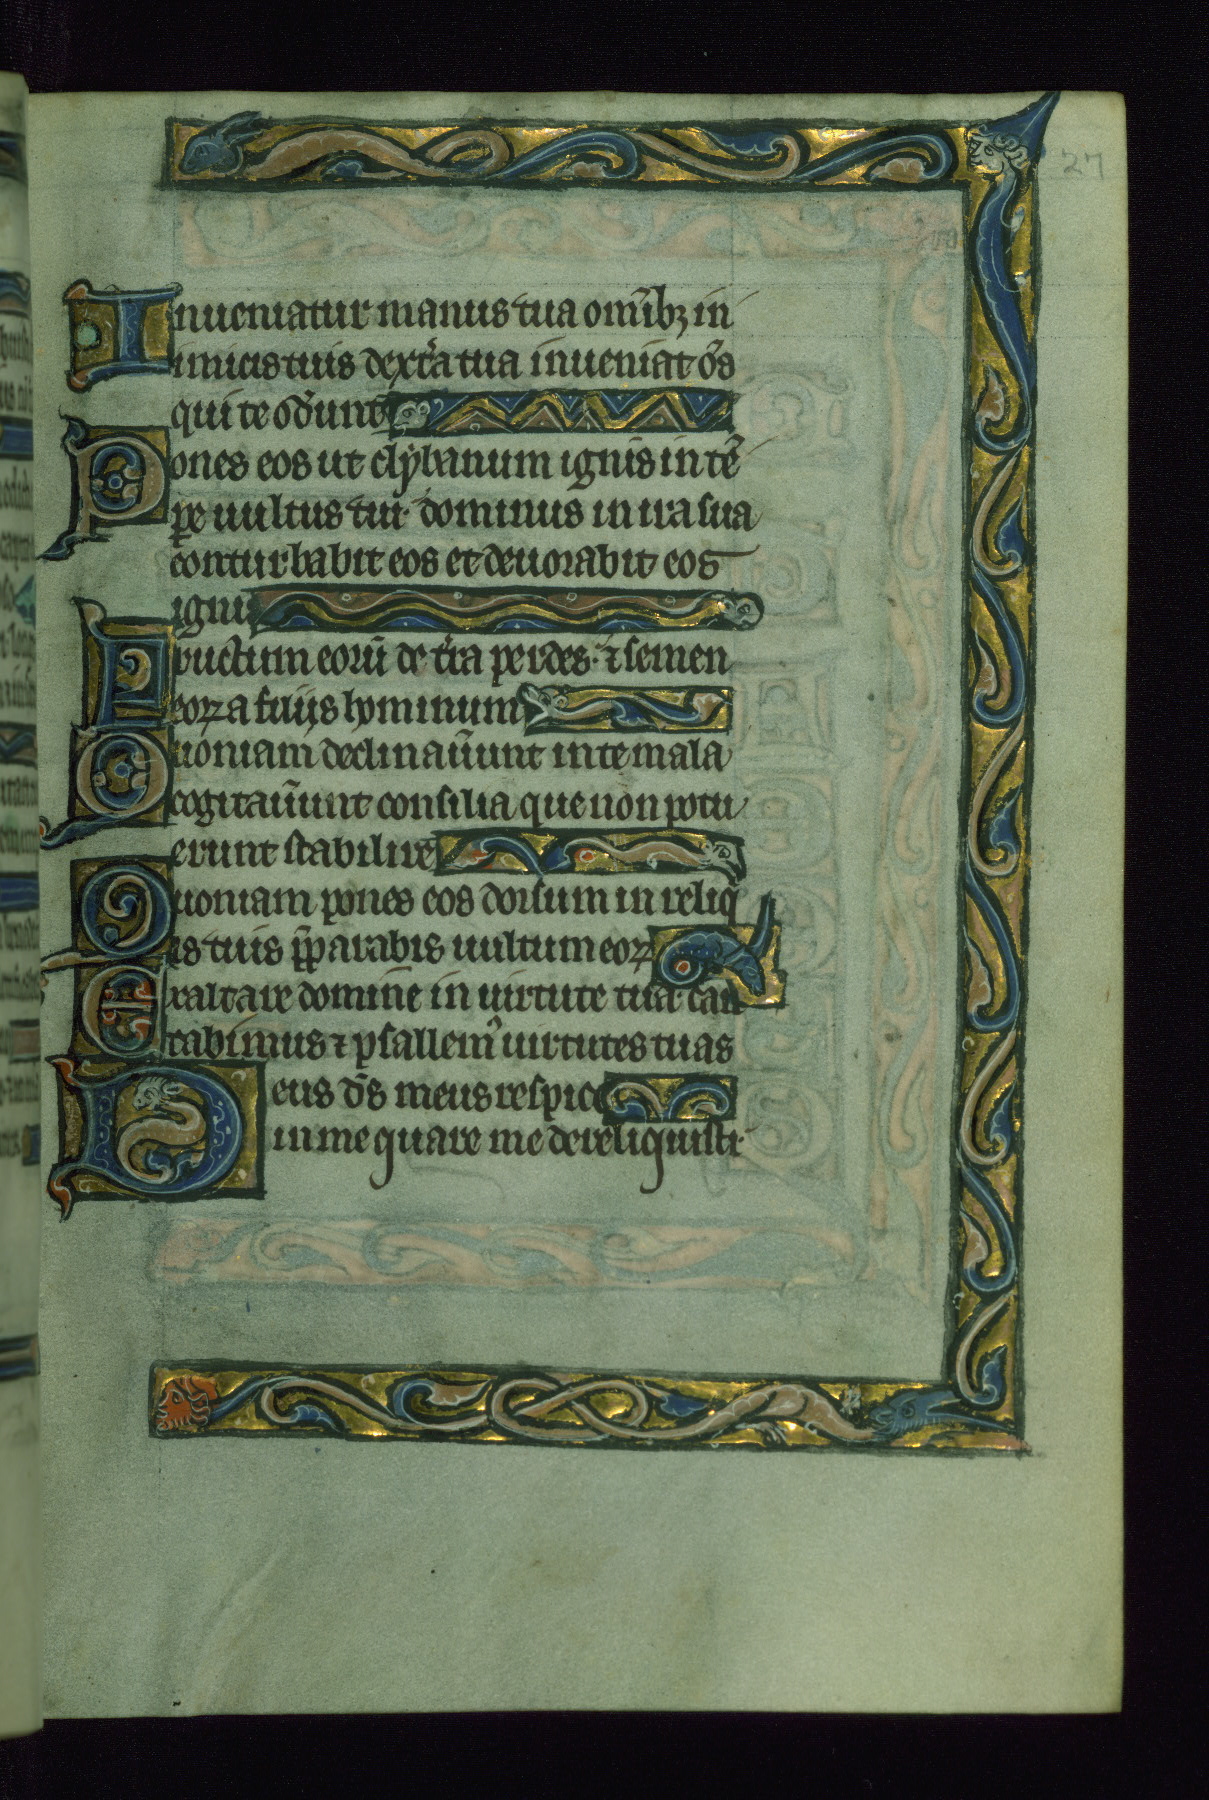 27
Inueniatur manus tua om̅ibꝫ in
imicis tuis dext͛a tua inueniat o̅s
qui te od̅unt
Pones eos ut clybanum ignis in te̅
pꝛe uultus tui· dominus in ira sua
conturbabit eos et deuorabit eos
ignis
Fructum eoru̅ de t͛ra perdes· ⁊ semen
eoꝝ a filijs hominum
Quoniam declinau̅unt in te mala
cogitau̅unt consilia que non potu
erunt stabilire
Quoniam pones eos dorsum in reliq̅
is tuis p̅parabis uultum eoꝝ
Exaltare domine in uirtute tua· can
tabimus ⁊ psallemꝰ uirtutes tuas
Deus d̅s meus respice
in me quare me dereliquisti·